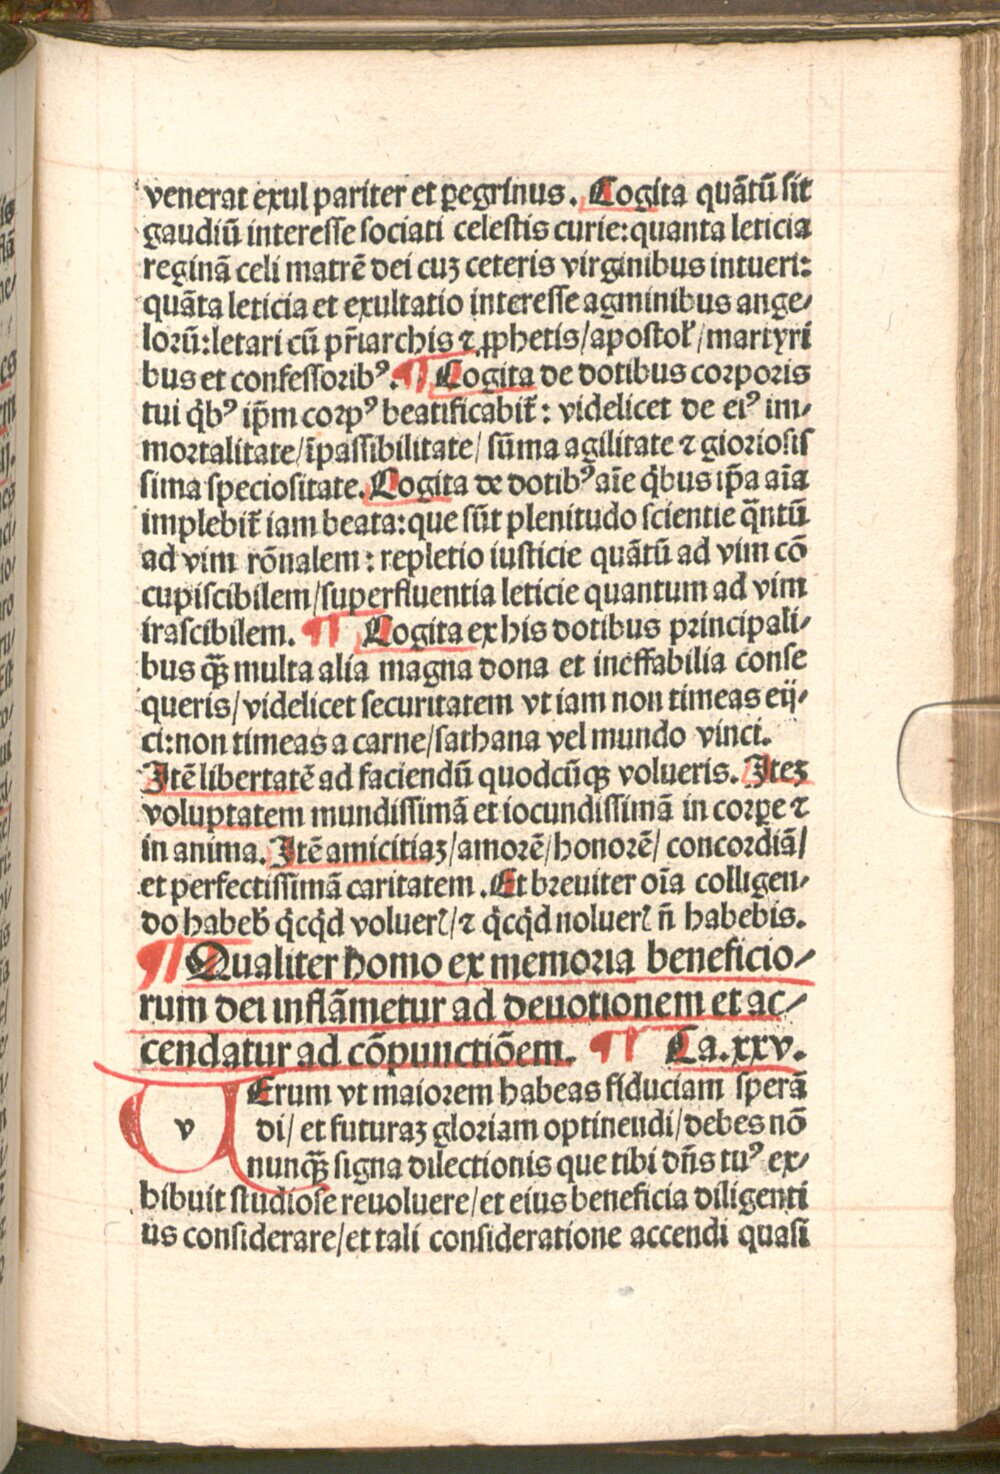 venerat exul pariter et ꝑegrinus. Cogita quātū sit
gaudiū interesse sociati celestis curie: quanta leticia
reginā celi matrē dei cuꝫ ceteris virginibus intueri:
quāta leticia et exultatio interesse agminibus ange⸗
lorū: letari cū pr̄iarchis ⁊ ꝓphetis/apostol’/martyri
bus et confessoribꝰ. ¶ Cogita de dotibus corporis
tui qͥbꝰ ip̄m corpꝰ beatificabit̄: videlicet de eiꝰ im⸗
mortalitate/īpassibilitate/ sūma agilitate ⁊ gloriosis
sima speciositate. Cogita de dotibꝰ aīe qͥbus ip̄a aīa
implebit̄ iam beata: que sūt plenitudo scientie qͣntū
ad vim rōnalem: repletio iusticie quātū ad vim cō
cupiscibilem/superfluentia leticie quantum ad vim
irascibilem. ¶ Cogita ex his dotibus principali⸗
bus qͣꝫ multa alia magna dona et ineffabilia conse
queris/videlicet securitatem vt iam non timeas eij⸗
ci: non timeas a carne/sathana vel mundo vinci.
Itē libertatē ad faciendū quodcūqꝫ volueris. Iteꝫ
voluptatem mundissimā et iocundissimā in corꝑe ⁊
in anima. Itē amicitiaꝫ/amorē/honorē/ concordiā/
et perfectissimā caritatem. Et breuiter oīa colligen⸗
do habeb̾ qͥcqͥd volueрꝭ/⁊ qͥcqͥd noluerꝭ n̄ habebis.
¶ Qualiter homo ex memoria beneficio⸗
rum dei inflāmetur ad deuotionem et ac⸗
cendatur ad cōpunctiōem. ¶ Ca.xxv.
v Erum vt maiorem habeas fiduciam sperā
di/ et futuraꝫ gloriam optinendi/debes nō
nunqͣꝫ signa dilectionis que tibi dn̄s tuꝰ ex⸗
hibuit studiose reuoluere/et eius beneficia diligenti
us considerare/et tali consideratione accendi quasi